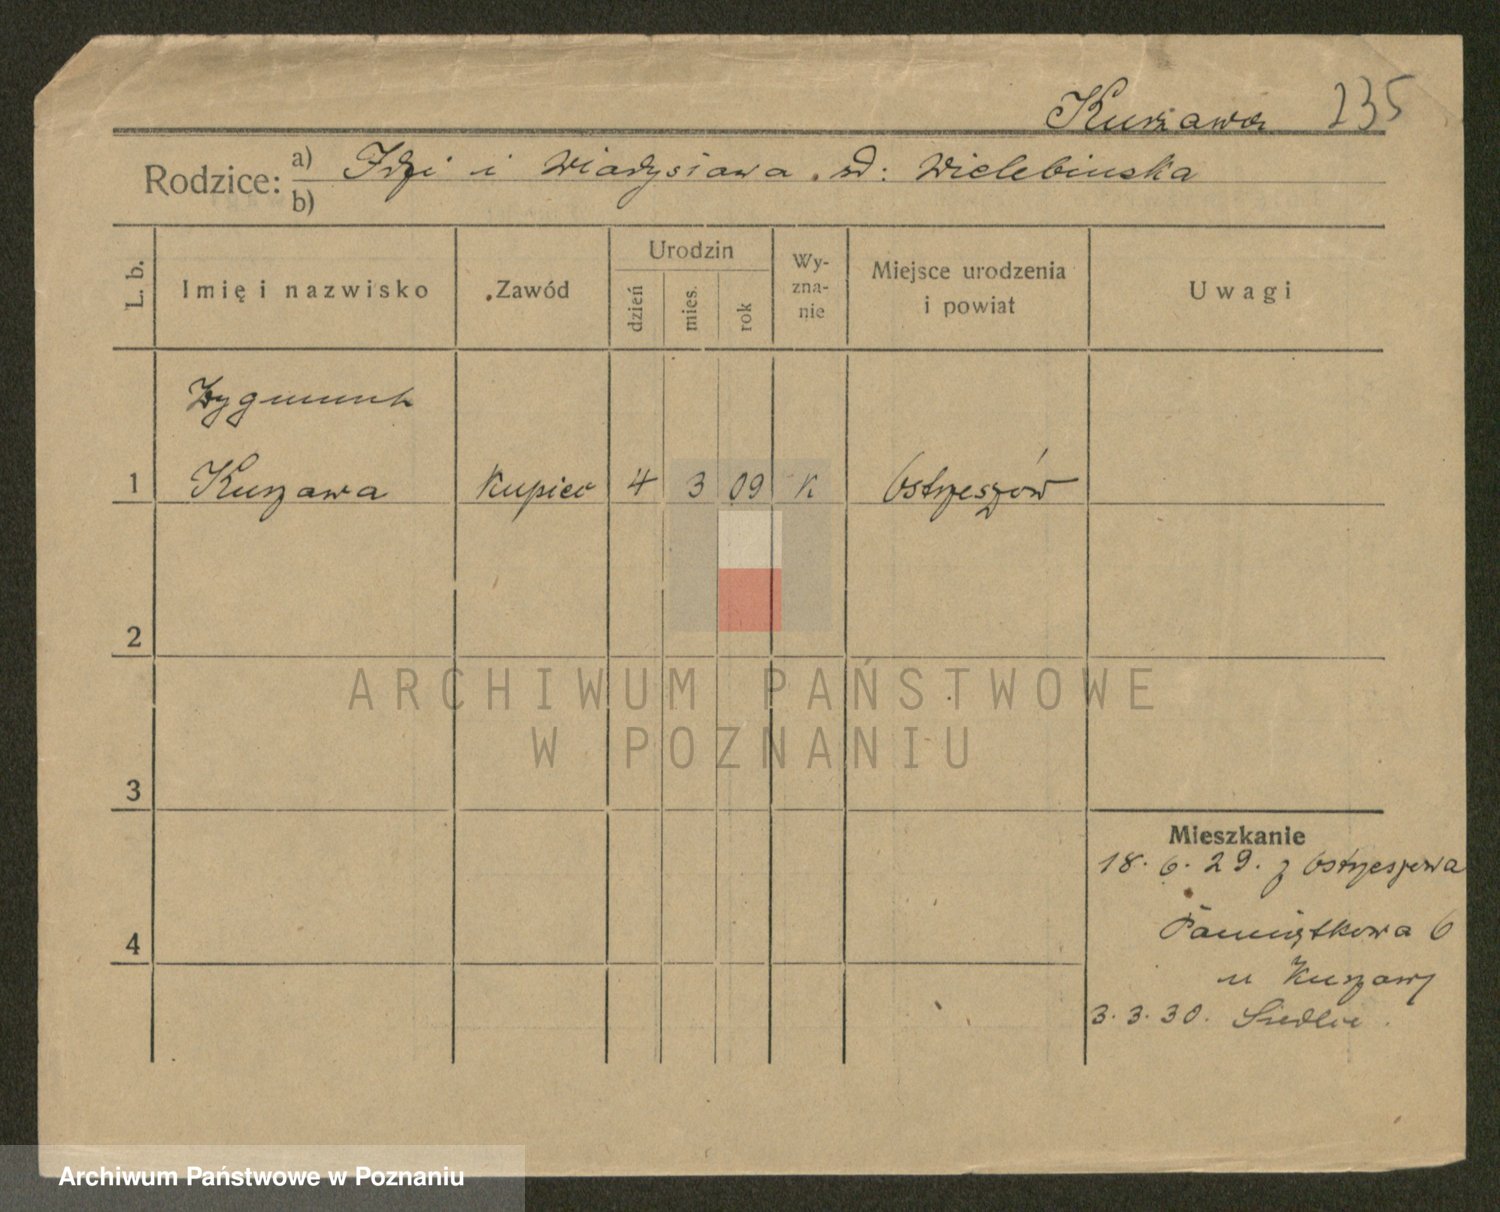 Kurzawa 235
Rodzice: a) Idzi i Władysława . d: Wielebinska
b)
L. b. Imię i nazwisko Zawód Urodzin dzień mies. rok Wy-zna-nie Miejsce urodzenia i powiat Uwagi
Zygmunt
1 Kurzawa Kupiec 4 3 09 K Ostrzeszów
2
ARCHIWUM PAŃSTWOWE
W POZNANIU
3
Mieszkanie
18. 6. 29. z Ostrzeszowa
4 Pamiątkowa 6
u Kurzawy
3. 3. 30. Siedlce.
Archiwum Państwowe w Poznaniu